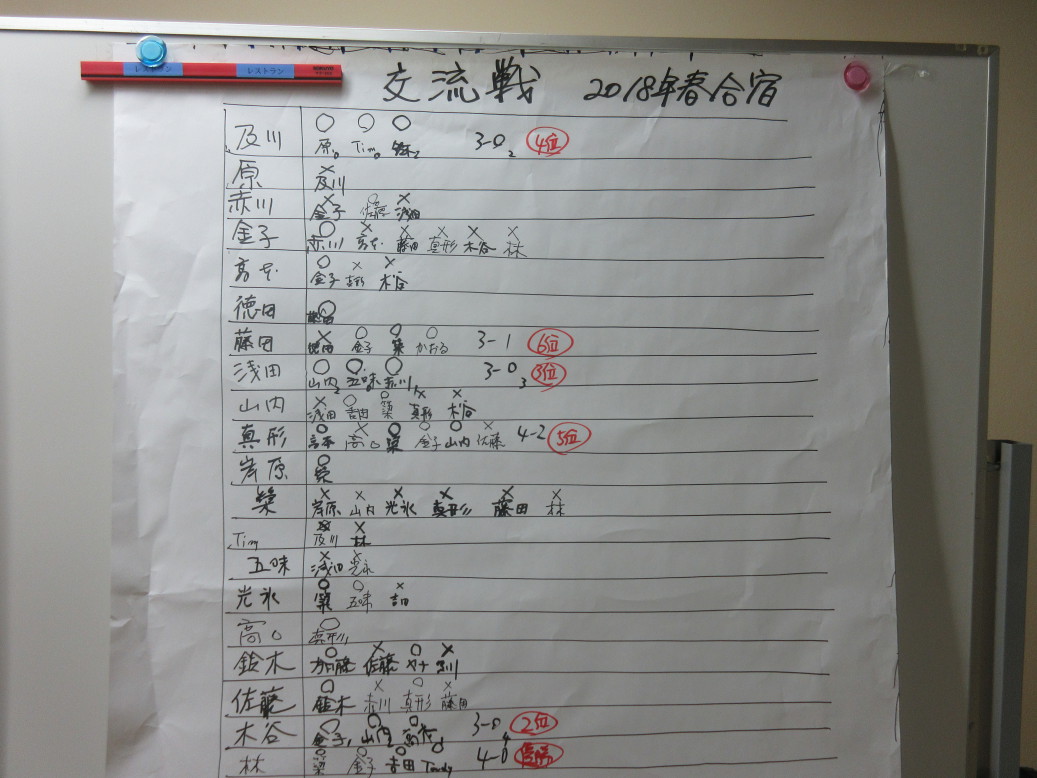 レストラン レストラン
交流戦 2018年春合宿
及川 原0 Tim0 鈴木2 3-0 2 4位
原 及川
赤川 金子 佐藤 浅田
金子 赤川 高本 藤田 真形 木谷 林
高本 金子 真形 木谷
徳田 藤田
藤田 徳田 金子 築 かおる 3-1 6位
浅田 山内2 五味0 赤川1 3-0 3 3位
山内 浅田 吉田 築 真形 木谷
真形 高本 高口 築 金子 山内 佐藤 4-2 5位
岸原 築
築 岸原 山内 光永 真形 藤田 林
Tim 及川 林
五味 浅田 光永
光永 築 五味 吉田
高口 真形
鈴木 加藤 佐藤 及川
佐藤 鈴木 赤川 真形 藤田
木谷 金子1 山内2 高本 3-0 4 2位
林 築 金子 吉田 4-0 優勝